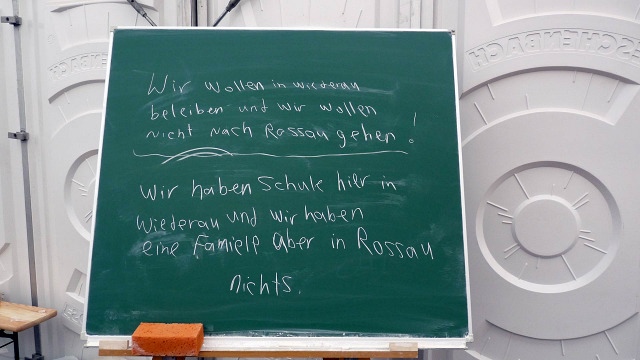 Wir wollen in wiederau
beleiben und wir wollen
nicht nach Rossau gehen!
Wir haben Schule hier in
Wiederau und wir haben
eine Familie aber in Rossau
nichts.
ESCHENBACH
ESCHENBACH